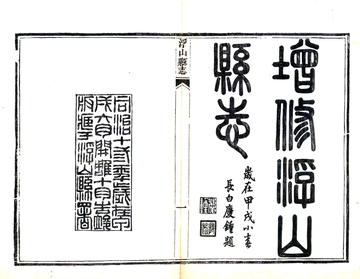 增修浮山
縣志
歲在甲戌小春
長白慶鍾題
浮山縣志
同治十三年歲
戌六月開雕十月
浮山縣署